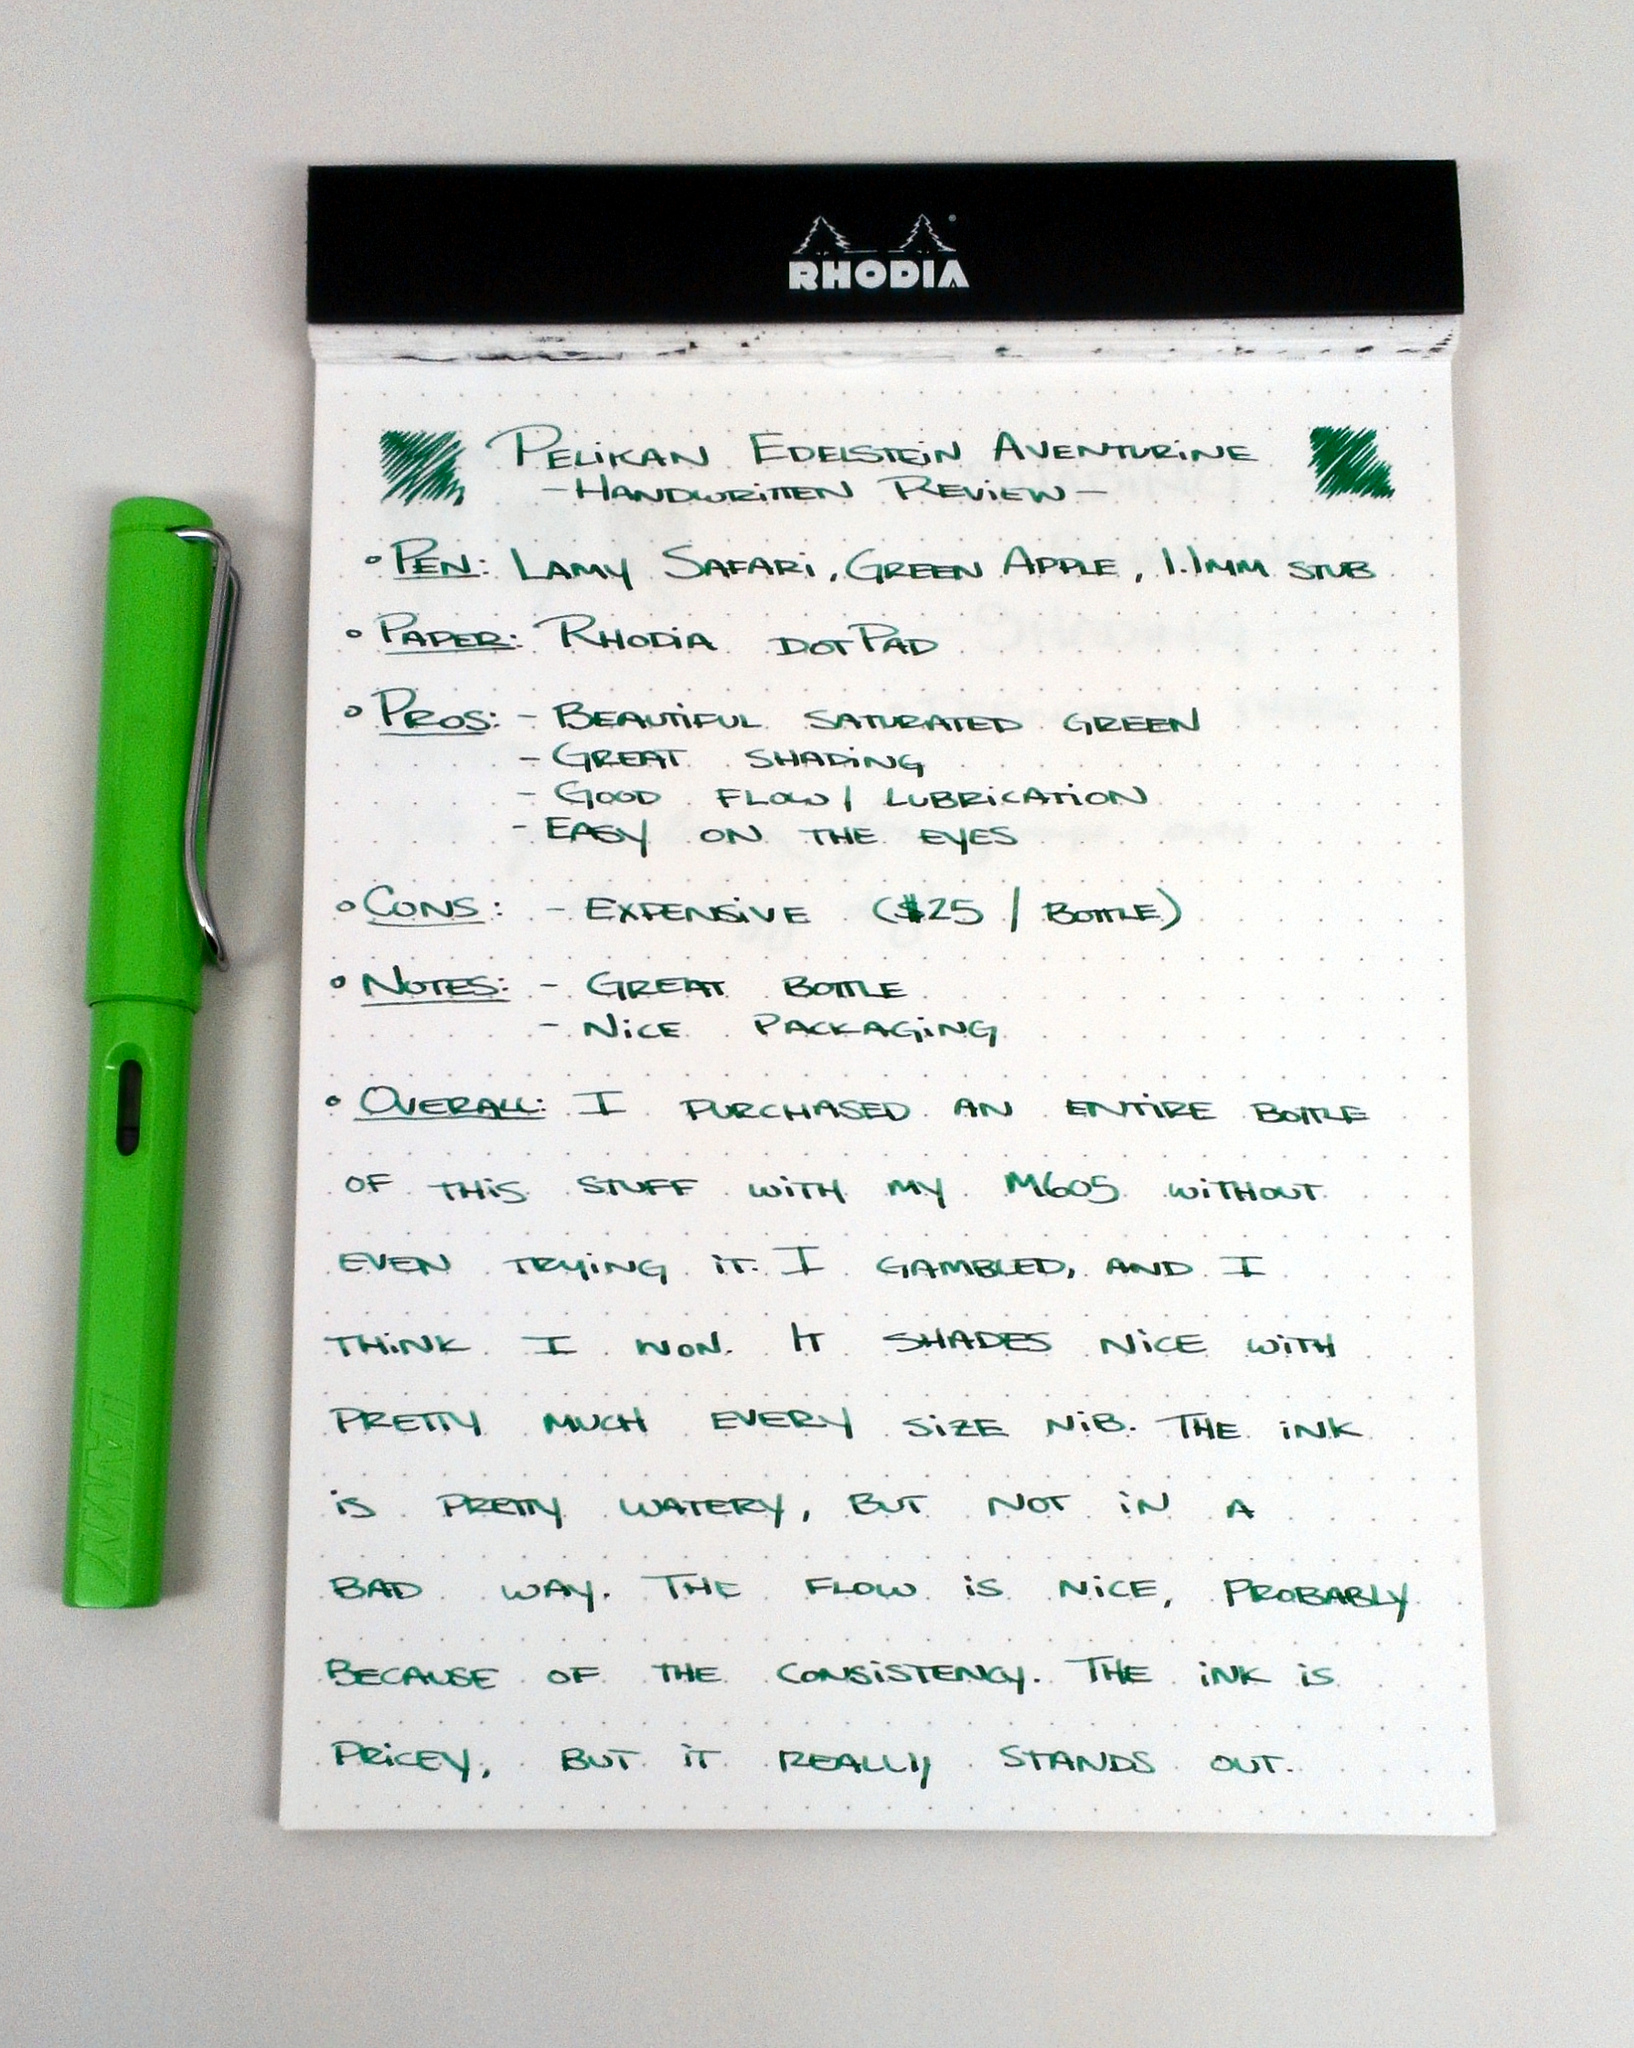 RHODIA
PELIKAN EDELSTEIN AVENTURINE
-HANDWRITTEN REVIEW-
° PEN: LAMY SAFARI, GREEN APPLE, 1.1MM STUB
° PAPER: RHODIA DOTPAD
° PROS: - BEAUTIFUL SATURATED GREEN
- GREAT SHADING
- GOOD FLOW/LUBRICATION
- EASY ON THE EYES
° CONS: - EXPENSIVE ($25 / BOTTLE)
° NOTES: - GREAT BOTTLE
- NICE PACKAGING
° OVERALL: I PURCHASED AN ENTIRE BOTTLE
OF THIS STUFF WITH MY M605 WITHOUT
EVEN TRYING IT. I GAMBLED, AND I
THINK I WON. IT SHADES NICE WITH
PRETTY MUCH EVERY SIZE NIB. THE INK
IS PRETTY WATERY, BUT NOT IN A
BAD WAY. THE FLOW IS NICE, PROBABLY
BECAUSE OF THE CONSISTENCY. THE INK IS
PRICEY, BUT IT REALLY STANDS OUT.
LAMY